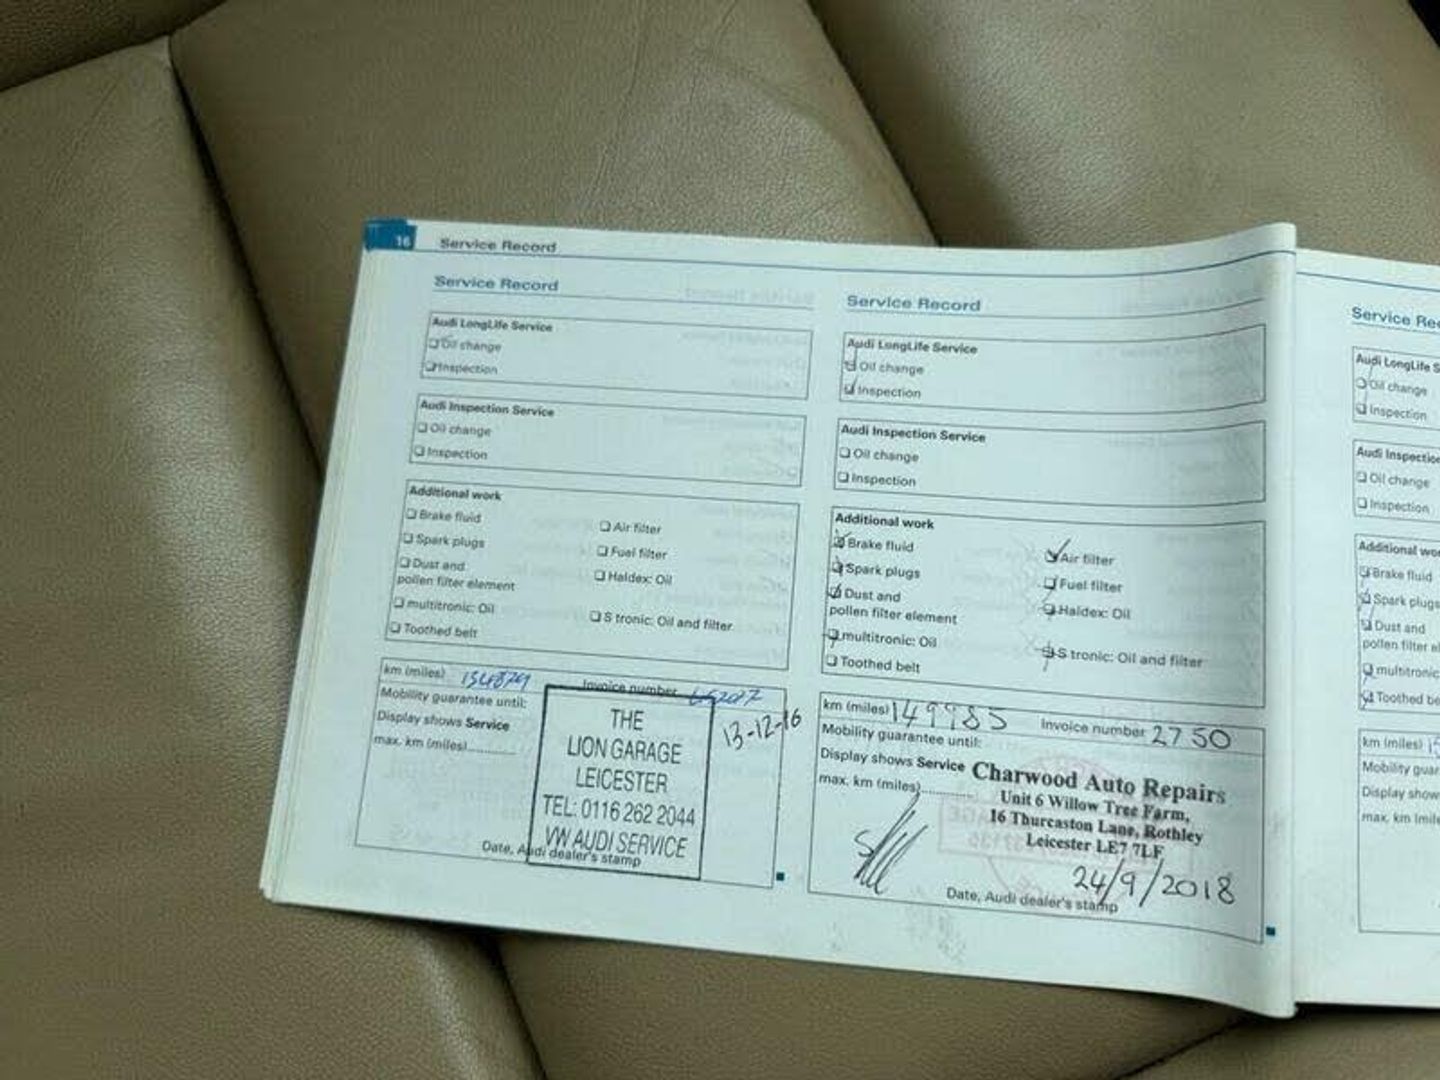 16 Service Record
Service Record
Audi LongLife Service
Oil change
Inspection
Audi Inspection Service
Oil change
Inspection
Additional work
Brake fluid
Air filter
Spark plugs
Fuel filter
Dust and
pollen filter element
Haldex: Oil
multitronic: Oil
S tronic: Oil and filter
Toothed belt
km (miles) Invoice number
Mobility guarantee until:
Display shows Service
max. km (miles)..........
THE
LION GARAGE
LEICESTER
TEL: 0116 262 2044
VW AUDI SERVICE
13-12-16
Date, Audi dealer's stamp
Service Record
Audi LongLife Service
Oil change
Inspection
Audi Inspection Service
Oil change
Inspection
Additional work
Brake fluid
Air filter
Spark plugs
Fuel filter
Dust and
pollen filter element
Haldex: Oil
multitronic: Oil
S tronic: Oil and filter
Toothed belt
km (miles) 149985 Invoice number 2750
Mobility guarantee until:
Display shows Service
max. km (miles)..........
Charwood Auto Repairs
Unit 6 Willow Tree Farm,
16 Thurcaston Lane, Rothley
Leicester LE7 7LF
24/9/2018
Date, Audi dealer's stamp
Service Rec
Audi LongLife S
Oil change
Inspection
Audi Inspection
Oil change
Inspection
Additional wor
Brake fluid
Spark plugs
Dust and
pollen filter el
multitronic
Toothed be
km (miles)
Mobility guar
Display show
max. km (mile